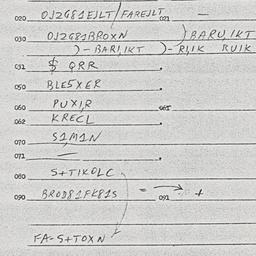 020 OJ2G81EJLT/FAREJLT 021 —
030 OJ2G81BROXN )BARU,IKT
)-BARI,IKT )-RI,IK RUIK
031 $ QRR
050 BLE5XER
060 PUXI,R 065
062 KRECL
070 S1,M1N
071 —
080 S+TIKOLC
090 BROD81FK81S = → 091 +
FA-S+TOXN